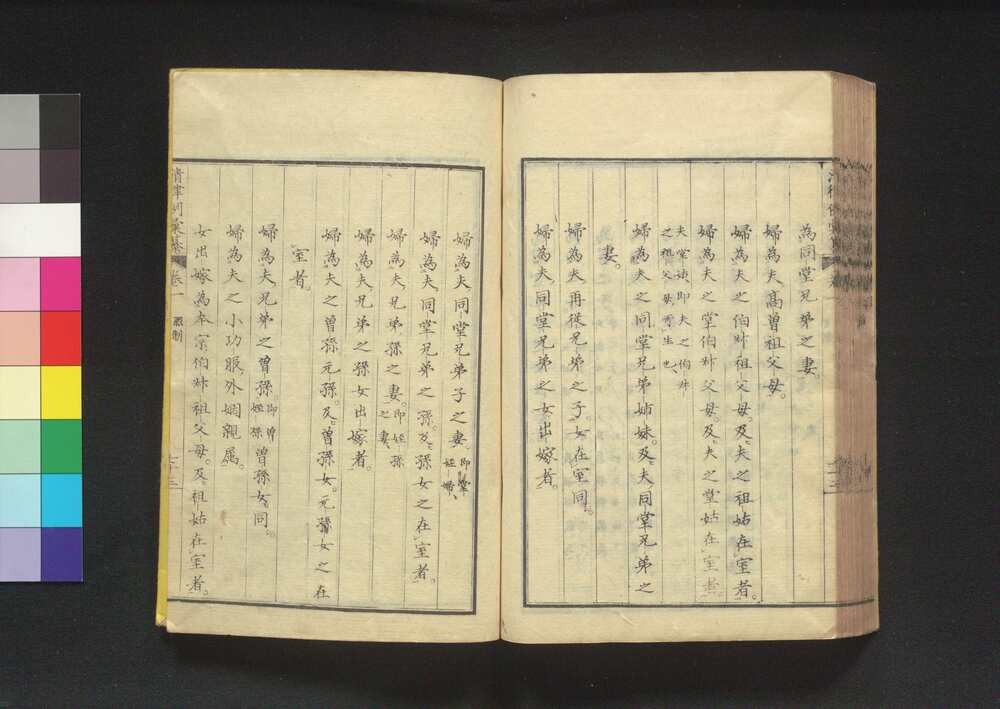 為同堂兄弟之妻。
婦為夫高曾祖父母。
婦為夫之伯叔祖父母。及夫之祖姑在室者。
婦為夫之堂伯叔父母。及夫之堂姑在室者。
夫堂姑、即夫之伯叔
之祖父母所生也、
婦為夫之同堂兄弟姉妹。及夫同堂兄弟之
妻。
婦為夫再從兄弟之子。女在室同。
婦為夫同堂兄弟之女出嫁者。
婦為夫同堂兄弟子之妻即堂
姪婦、
婦為夫同堂兄弟之孫。及孫女之在室者。
婦為夫兄弟孫之妻。即姪孫
之妻、
婦為夫兄弟之孫女出嫁者。
婦為夫之曾孫元孫。及曾孫女。元孫女之在
室者。
婦為夫兄弟之曾孫即曾
姪孫曾孫女同。
婦為夫之小功服外姻親屬。
女出嫁為本宗伯叔祖父母及祖姑在室者。
清律例彙纂 卷一 服制